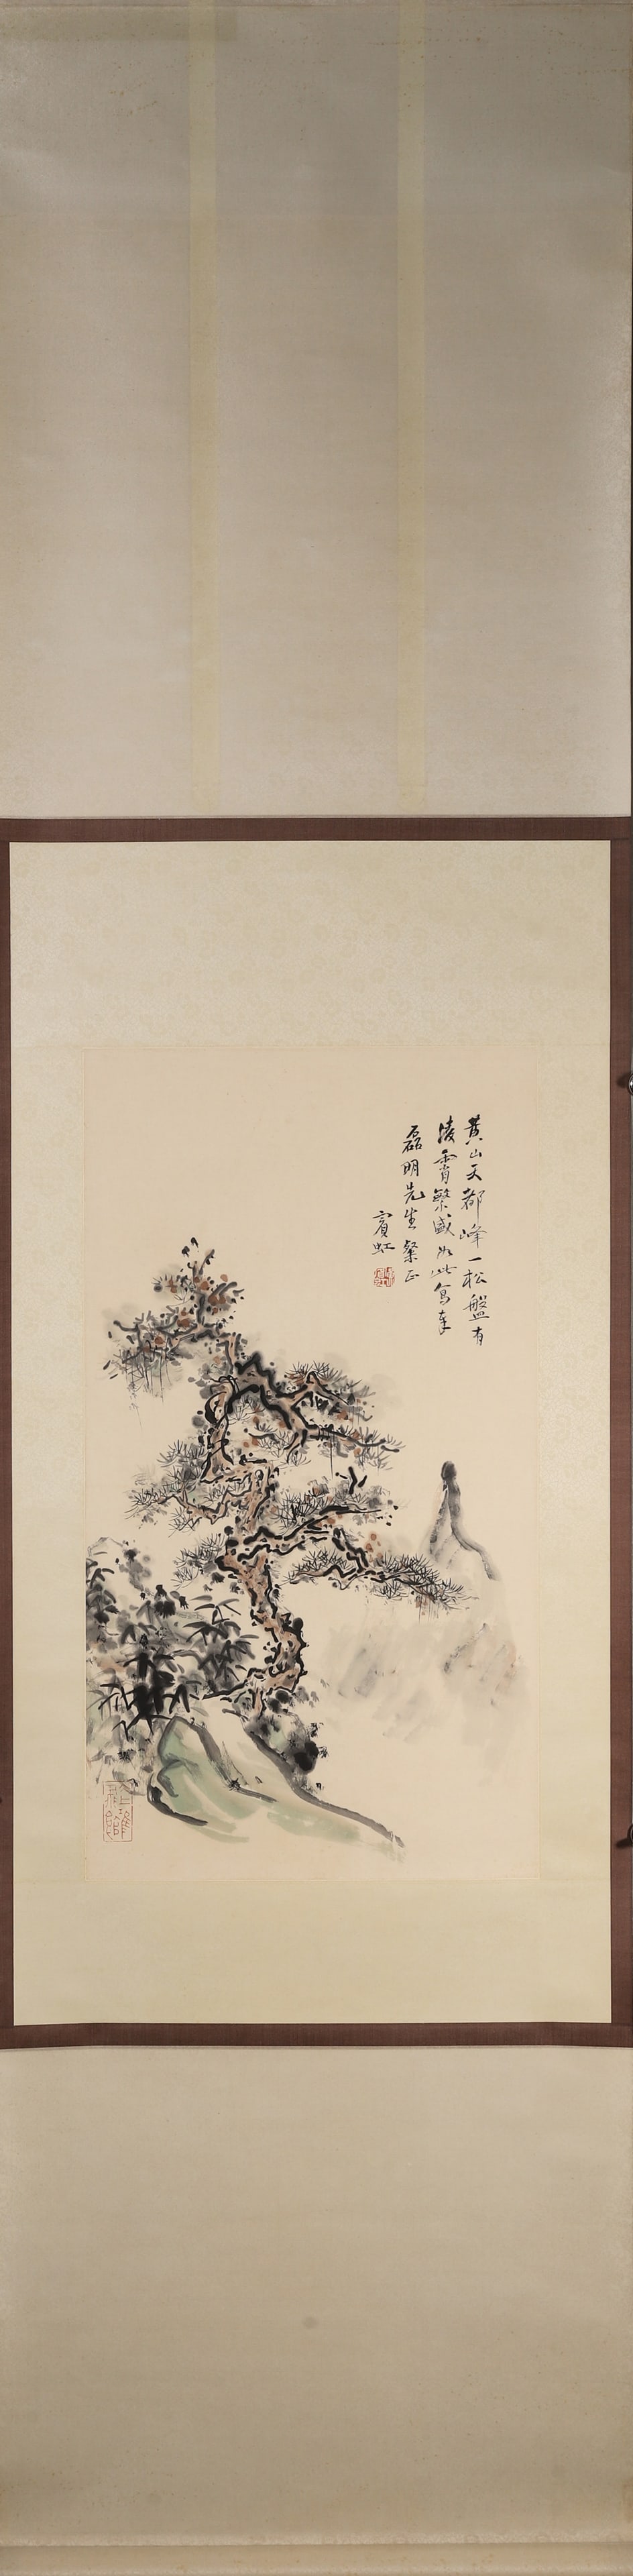 黄山天都峰一松盤有
凌霄繁盛如此寫奉
磊明先生粲正
賓虹